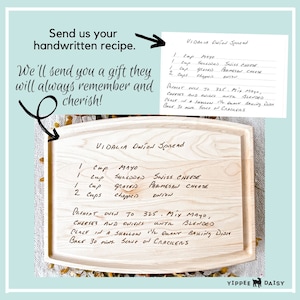 Send us your
handwritten recipe.
We'll send you a gift they
will always remember and
cherish!
VIDALIA ONION SPREAD
1 CUP MAYO
1 CUP SHREDDED SWISS CHEESE
1 CUP GRATED PARMESAN CHEESE
2 CUPS CHOPPED ONION
PREHEAT OVEN TO 325. MIX MAYO,
CHEESES AND ONIONS UNTIL BLENDED
PLACE IN A SHALLOW 1½ QUART BAKING DISH
BAKE 30 MIN. SERVE ON CRACKERS
VIDALIA ONION SPREAD
1 CUP MAYO
1 CUP SHREDDED SWISS CHEESE
1 CUP GRATED PARMESAN CHEESE
2 CUPS CHOPPED ONION
PREHEAT OVEN TO 325. MIX MAYO,
CHEESES AND ONIONS UNTIL BLENDED
PLACE IN A SHALLOW 1½ QUART BAKING DISH
BAKE 30 MIN. SERVE ON CRACKERS
YIPPIE DAISY